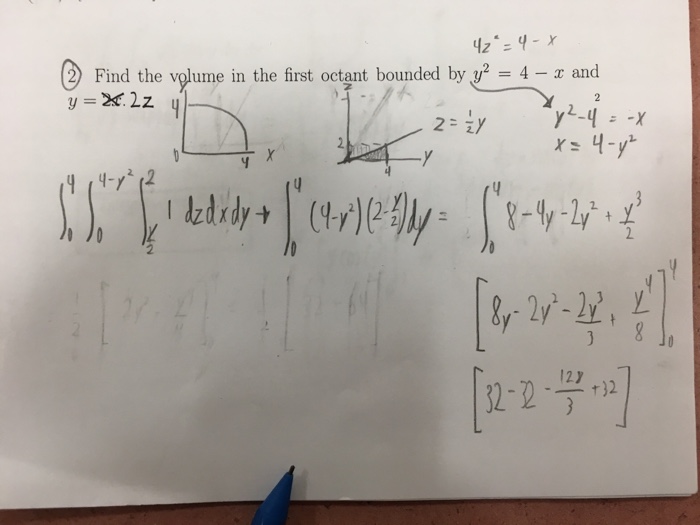 4z² = 4 - x
② Find the volume in the first octant bounded by y² = 4 − x and
y = 2x. 2z
4
0
4
x
z
2
4
y
z = ½y
y² - 4 = -x
2
x = 4 - y²
∫₀⁴ ∫₀^(4-y²) ∫_(y/2)^2 1 dzdxdy + ∫₀⁴ (4-y²)(2-y/2)dy = ∫₀⁴ 8 - 4y - 2y² + y³/2
[8y - 2y² - 2y³/3 + y⁴/8]₀⁴
[32 - 32 - 128/3 + 32]